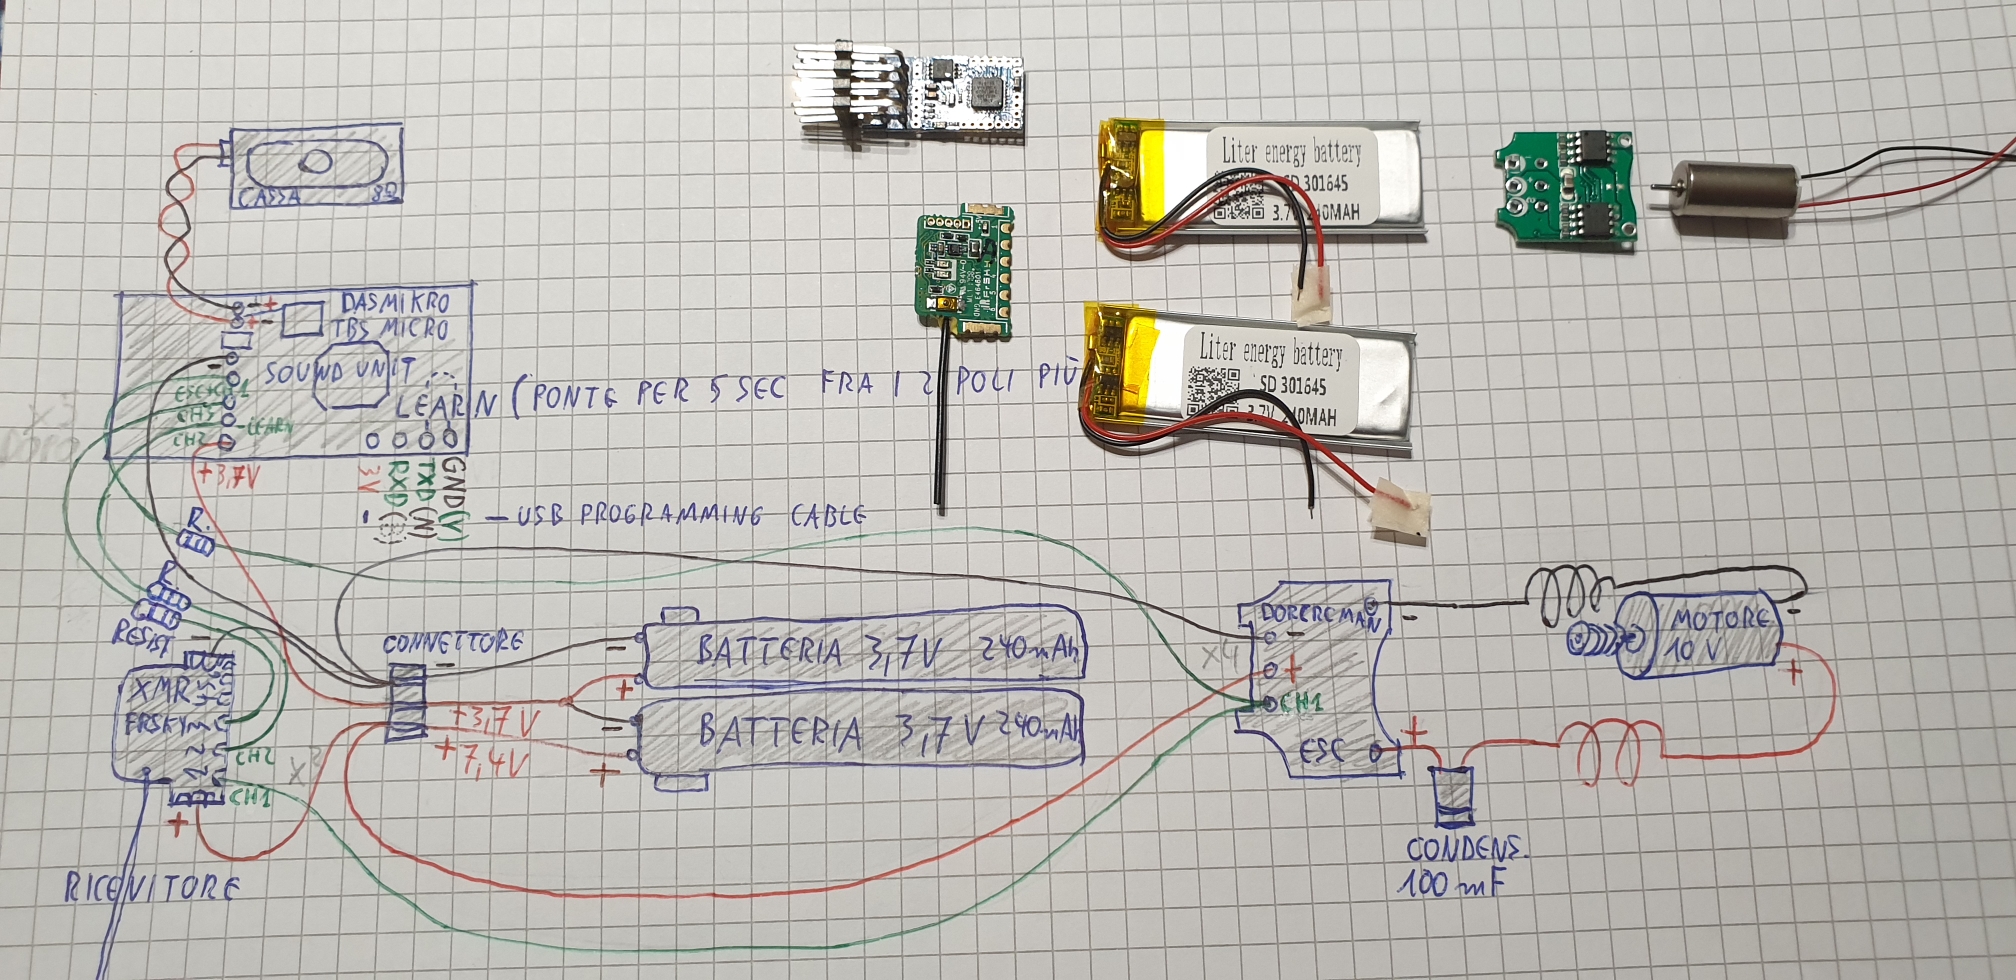 CASSA 8Ω
- +
+ -
DASMIKRO
TBS MICRO
SOUND UNIT
LEARN (PONTE PER 5 SEC FRA I 2 POLI PIÙ
-
ESC
CH3
-LEARN
CH2
+3,7V
3V
RXD
TXD (N)
GND (V)
- USB PROGRAMMING CABLE
R.
R
RESIST
-
XMR
FRSKY
CH2
CH1
+
x2
RICEVITORE
CONNETTORE
-
+3,7V
+7,4V
-
+
BATTERIA 3,7V 240mAh
-
+
BATTERIA 3,7V 240mAh
DORCREMAN
-
+
CH1
x4
ESC
-
+
MOTORE
10V
-
+
CONDENS.
100 mF
Liter energy battery
SD 301645
3.7V 240MAH
Liter energy battery
SD 301645
3.7V 240MAH
FrSky